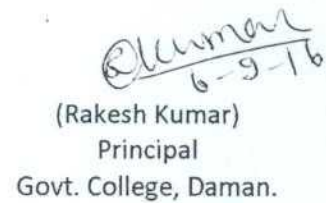 Rkumar
6-9-16
(Rakesh Kumar)
Principal
Govt. College, Daman.